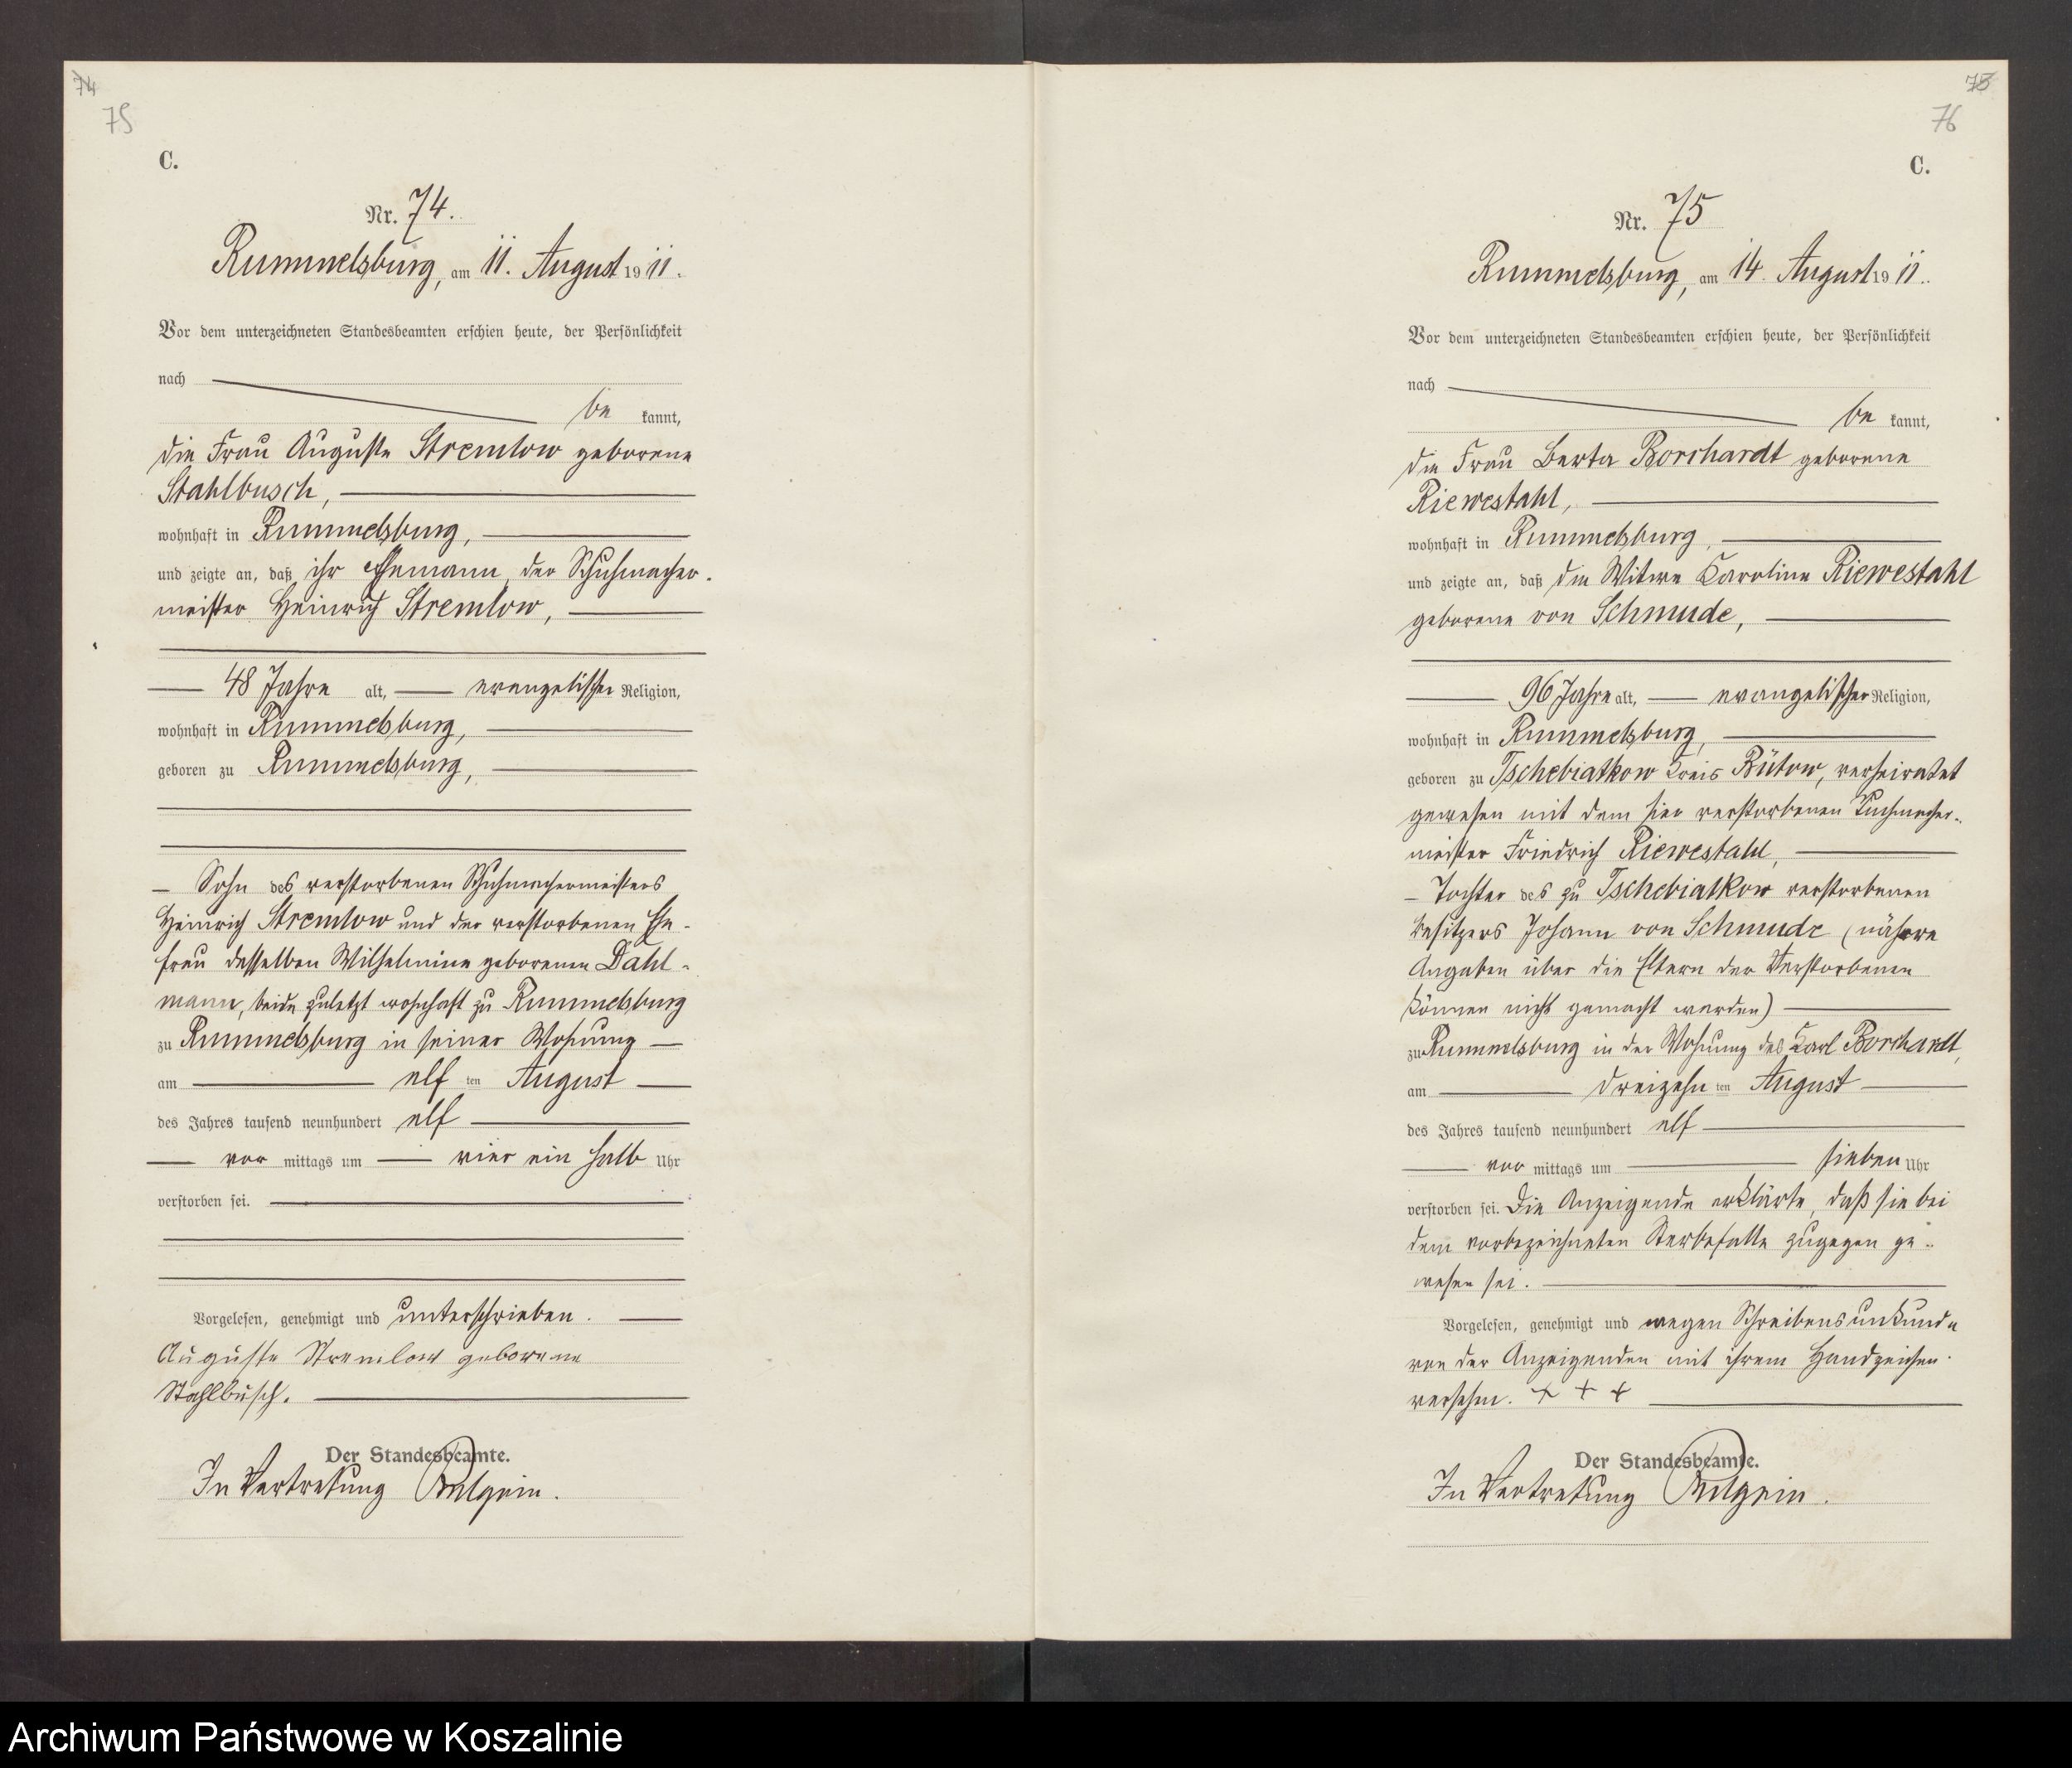 74
75
C.
Nr. 74.
Rummelsburg, am 11. August 1911.
Vor dem unterzeichneten Standesbeamten erschien heute, der Persönlichkeit
nach
be kannt,
die Frau Auguste Stremlow geborene
Stahlbusch,
wohnhaft in Rummelsburg,
und zeigte an, daß ihr Ehemann, der Schuhmacher-
meister Heinrich Stremlow,
48 Jahre alt, evangelischer Religion,
wohnhaft in Rummelsburg,
geboren zu Rummelsburg,
Sohn des verstorbenen Schuhmachermeisters
Heinrich Stremlow und der verstorbenen Ehe-
frau desselben Wilhelmine geborenen Dahl-
mann, beide zuletzt wohnhaft zu Rummelsburg
zu Rummelsburg in seiner Wohnung
am elf ten August
des Jahres tausend neunhundert elf
vor mittags um vier ein halb Uhr
verstorben sei.
Vorgelesen, genehmigt und unterschrieben.
Auguste Stremlow geborene
Stahlbusch.
Der Standesbeamte.
In Vertretung
75
76
C.
Nr. 75
Rummelsburg, am 14. August 1911.
Vor dem unterzeichneten Standesbeamten erschien heute, der Persönlichkeit
nach
be kannt,
die Frau Berta Borchardt geborene
Riewestahl,
wohnhaft in Rummelsburg,
und zeigte an, daß die Witwe Karoline Riewestahl
geborene von Schmude,
96 Jahre alt, evangelischer Religion,
wohnhaft in Rummelsburg,
geboren zu Tschebiatkow Kreis Bütow, verheiratet
gewesen mit dem hier verstorbenen Tuchmacher-
meister Friedrich Riewestahl,
Tochter des zu Tschebiatkow verstorbenen
Besitzers Johann von Schmude (nähere
Angaben über die Eltern der Verstorbenen
können nicht gemacht werden)
zu Rummelsburg in der Wohnung des Karl Borchardt,
am dreizehn ten August
des Jahres tausend neunhundert elf
vor mittags um sieben Uhr
verstorben sei. Die Anzeigende erklärte, daß sie bei
dem vorbezeichneten Sterbefalle zugegen ge-
wesen sei.
Vorgelesen, genehmigt und wegen Schreibensunkunde
von der Anzeigenden mit ihrem Handzeichen
versehen. + + +
Der Standesbeamte.
In Vertretung
Archiwum Państwowe w Koszalinie